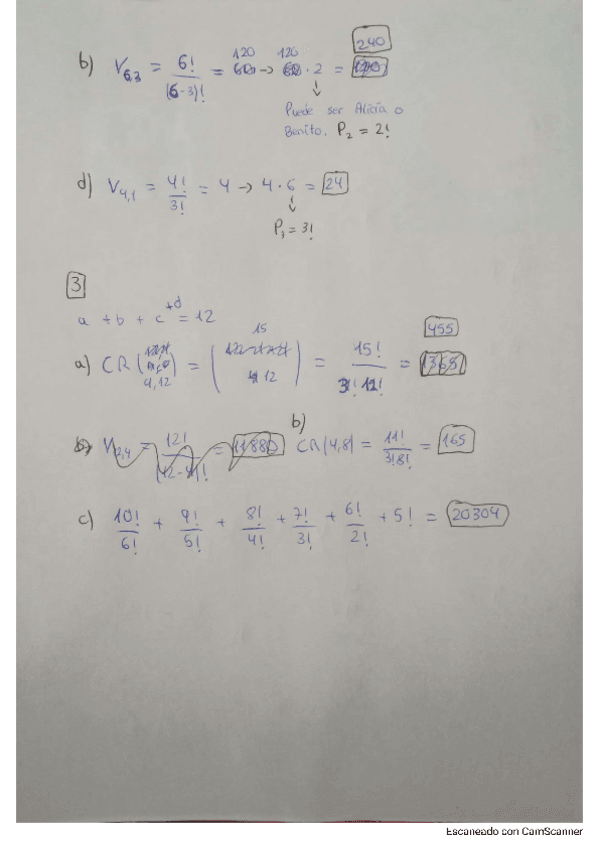 240
120 120
b) V6,3 = 6! / (6-3)! = → · 2 =
↓
Puede ser Alicia o
Benito. P2 = 2!
d) V4,1 = 4! / 3! = 4 → 4 · 6 = 24
↓
P3 = 3!
3
a + b + c + d = 12
a) CR (4,12) = (15 12) = 15! / 3! 12! = 455
b) CR(4,8) = 11! / 3! 8! = 165
c) 10! / 6! + 9! / 5! + 8! / 4! + 7! / 3! + 6! / 2! + 5! = 20304
Escaneado con CamScanner